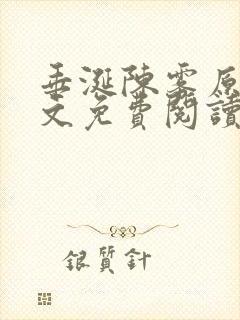 垂涎陳霧原
文免費閱讀
銀質針